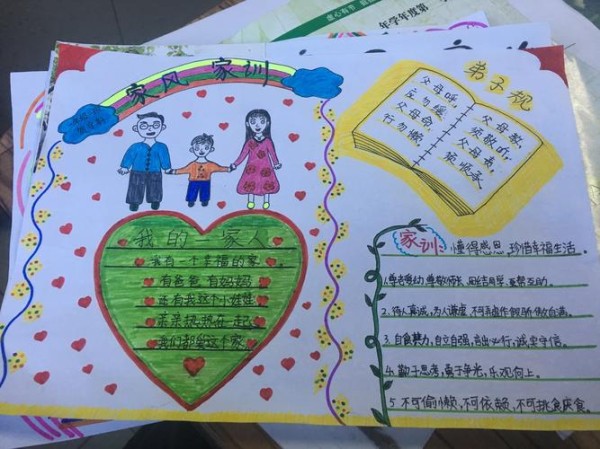 年学年度第
虚心有节
家风家训
弟子规
父母呼,
应勿缓,
父母命,
行勿懒,
父母教,
须敬听,
父母责,
须顺承
我的一家人
我有一个幸福的家。
有爸爸 有妈妈
还有我这个小娃娃
亲亲 在一起
我们都 这个家
家训: 懂得感恩 珍惜幸福生活。
1.尊老爱幼 尊敬师长,团结同学,互帮互助。
2.待人真诚,为人谦虚
3.自食其力,自立自强,言出必行,诚实守信。
4.勤于思考,勇于争光,乐观向上。
5 不可偷懒,不可依赖,不可挑食厌食。